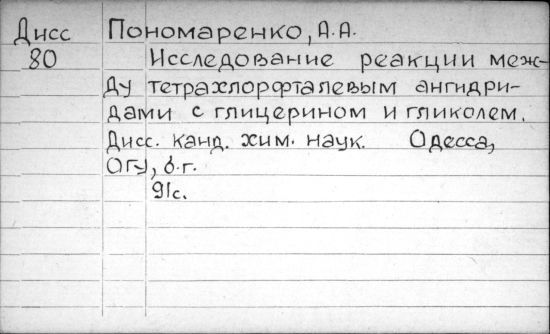 Дисс Пономаренко, А.А.
80 Исследование реакции меж-
ду тетрахлорфталевым ангидри-
дами с глицерином и гликолем.
Дисс. канд. хим. наук. Одесса,
ОГУ, б.г.
91с.